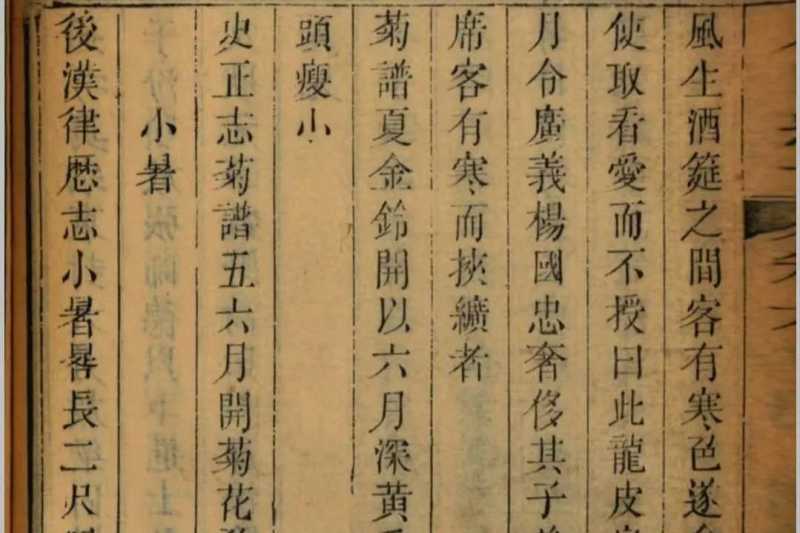 風生酒筵之間客有寒色遂
使取看愛而不授曰此龍皮
月令廣義楊國忠奢侈其子
席客有寒而挾纊者
菊譜夏金鈴開以六月深黃
頭瘦小
史正志菊譜五六月開菊花
小暑
後漢律歷志小暑晷長二尺